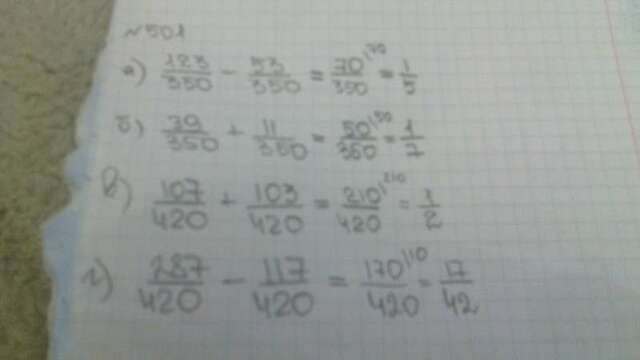 №501
а) 123/350 - 53/350 = 70/350 ⁽⁷⁰ = 1/5
б) 39/350 + 11/350 = 50/350 ⁽⁵⁰ = 1/7
в) 107/420 + 103/420 = 210/420 ⁽²¹⁰ = 1/2
г) 287/420 - 117/420 = 170/420 ⁽¹⁰ = 17/42